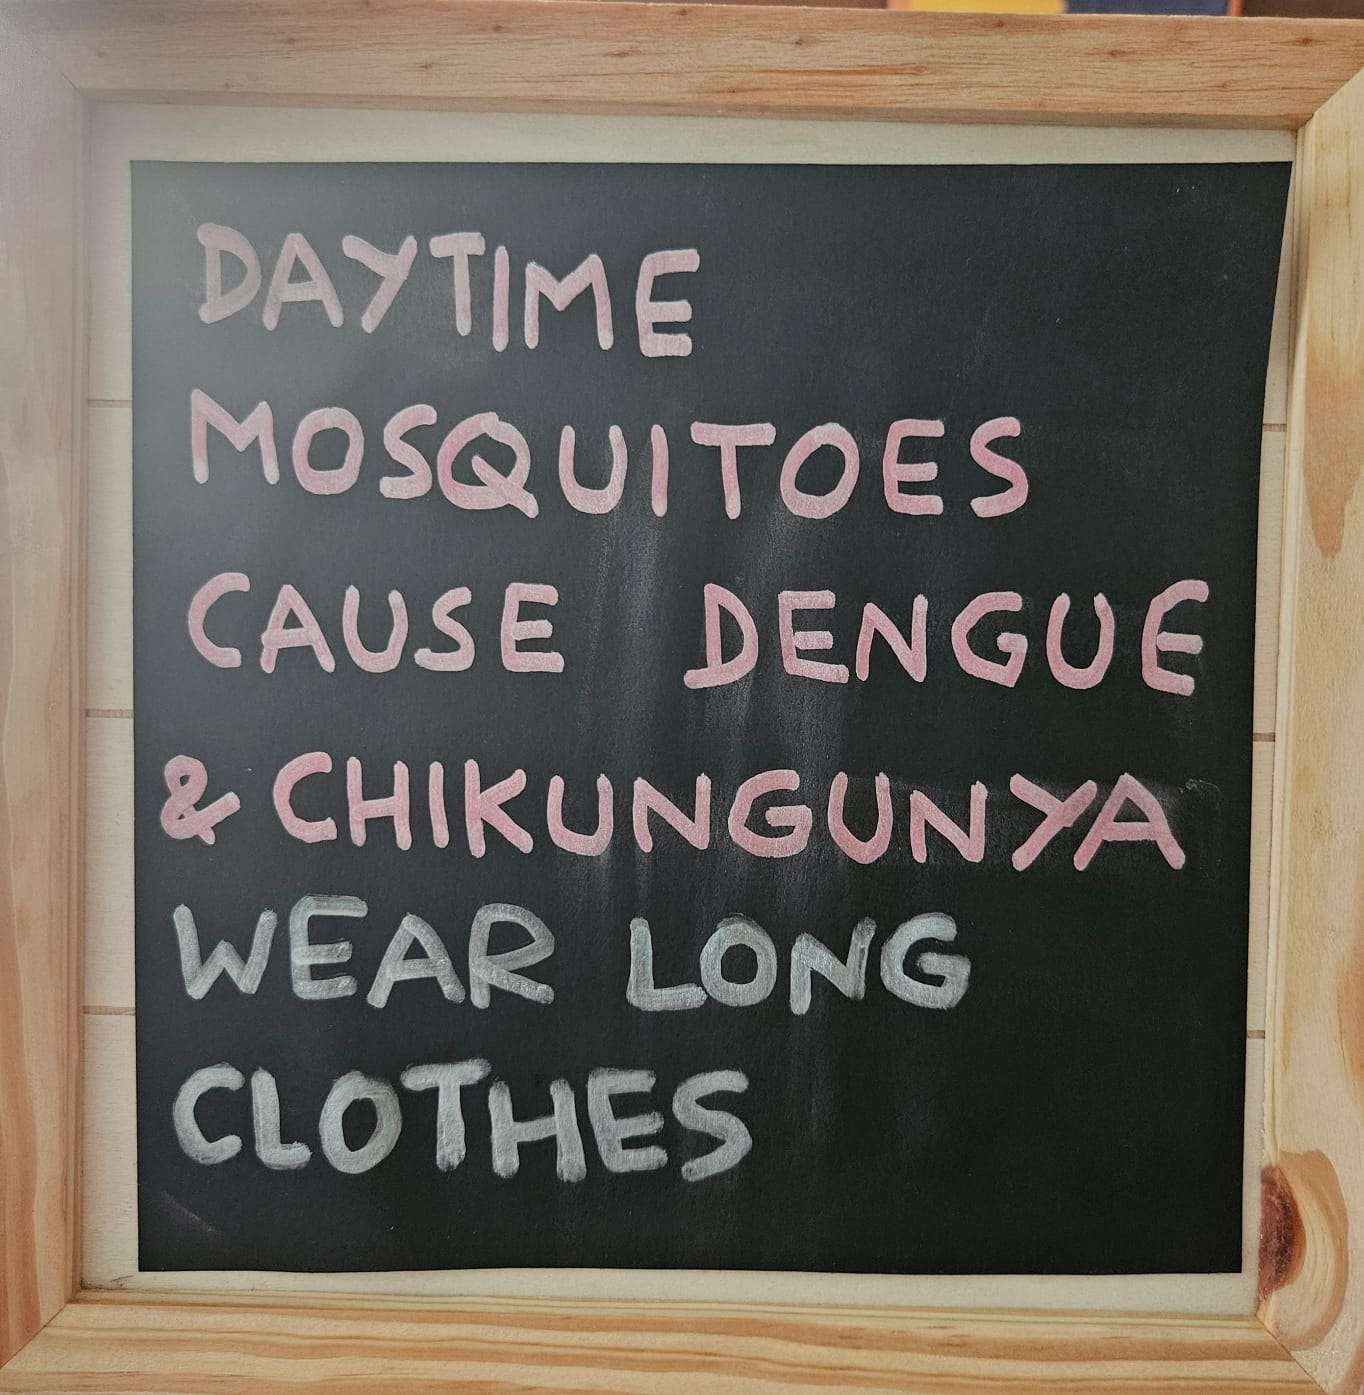 DAYTIME
MOSQUITOES
CAUSE DENGUE
& CHIKUNGUNYA
WEAR LONG
CLOTHES